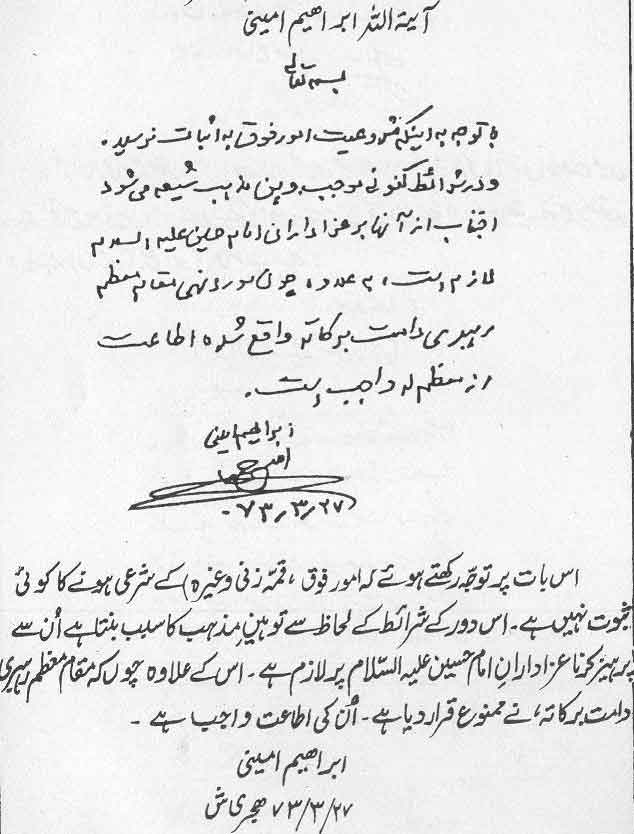 آیۃ اللہ ابراھیم امینی
بسمه تعالی
با توجه به اینکه مشروعیت امور فوق به اثبات نرسیده،
و در شرائط کنونی موجب وهن مذهب شیعه می‌شود
اجتناب از آنها بر عزاداران امام حسین علیه السلام
لازم است، به علاوه چون مورد نهی مقام معظم
رهبری دامت برکاته واقع شده اطاعت
از معظم له واجب است.
ابراهیم امینی
۷۳/۳/۲۷
اس بات پر توجّہ رکھتے ہوئے کہ امور فوق (قمّہ زنی وغیرہ) کے شرعی ہونے کا کوئی
ثبوت نہیں ہے۔ اس دور کے شرائط کے لحاظ سے توہینِ مذہب کا سبب بنتا ہے اُن سے
پرہیز کرنا عزادارانِ امام حسین علیہ السّلام پر لازم ہے۔ اس کے علاوہ چوں کہ مقام معظم رہبری
دامت برکاتہ، نے ممنوع قرار دیا ہے۔ اُن کی اطاعت واجب ہے۔
ابراھیم امینی
۷۳/۳/۲۷ ھجری ش